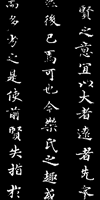 賢之意宜以大者遠者先
後已焉可也今榮氏之趣或
高名考之是使前賢失指於